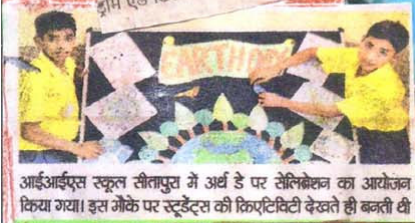 ड्रॉम एंड
EARTH DAY
आईआईएस स्कूल सीतापुरा में अर्थ डे पर सेलिब्रेशन का आयोजन
किया गया। इस मौके पर स्टूडेंट्स की क्रिएटिविटी देखते ही बनती थी